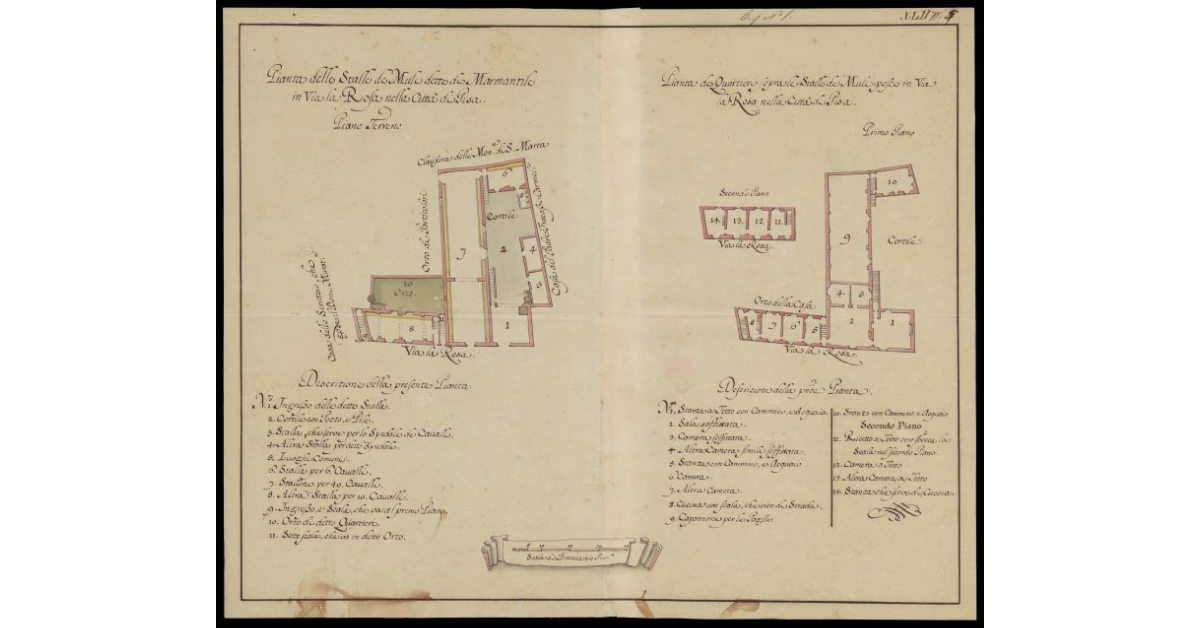 XLII
Pianta delle Stalle de Mule dette di Marmantile
in Via la Rosa nella Città di Pisa.
Piano Terreno
Clausura delle Mon.e di S. Marta
Orto di Particolari
Cortile
10
Orto.
Via la Rosa.
1
2
3
4
6
7
8
9
Descrizione della presente Pianta
N.º 1. Ingresso delle dette Stalle.
2. Cortile con Pozzo, e Pile.
3. Stalla, che serve per lo Spedale de Cavalli.
4. Altra Stalla per detto Spedale.
5. Luoghi Comuni.
6. Stalla per 6. Cavalli.
7. Stallone per 49. Cavalli.
8. Altra Stalla per 10. Cavalli.
9. Ingresso, e Scala, che va al primo Piano.
10. Orto di detto Quartiere.
11. Sotto scala, che va in detto Orto.
Pianta de Quartieri sopra le Stalle de Mule poste in Via
la Rosa nella Città di Pisa.
Primo Piano
Secondo Piano
14. 13. 12. 11.
Via la Rosa.
10
9
Cortile
Orto della Casa
4 3
8 7 6 5 2 1
Via la Rosa.
Descrizione della pñte Pianta.
N.º 1. Stanza a Tetto con Cammino, ed Aquaio
2. Sala soffittata.
3. Camera soffittata.
4. Altra Camera simile soffittata.
5. Stanza con Cammino, e Acquaio
6. Camera.
7. Altra Camera.
8. Cucina con scala, che vien di Strada.
9. Capannone per le Paglie
10. Stanza con Cammino, e Acquaio
Secondo Piano
11. Ricetto a Tetto ove sbocca la
Scala nel secondo Piano.
12. Camera a Tetto
13. Altra Camera a Tetto
14. Stanza che serve di Cucina.
Scala di Braccia